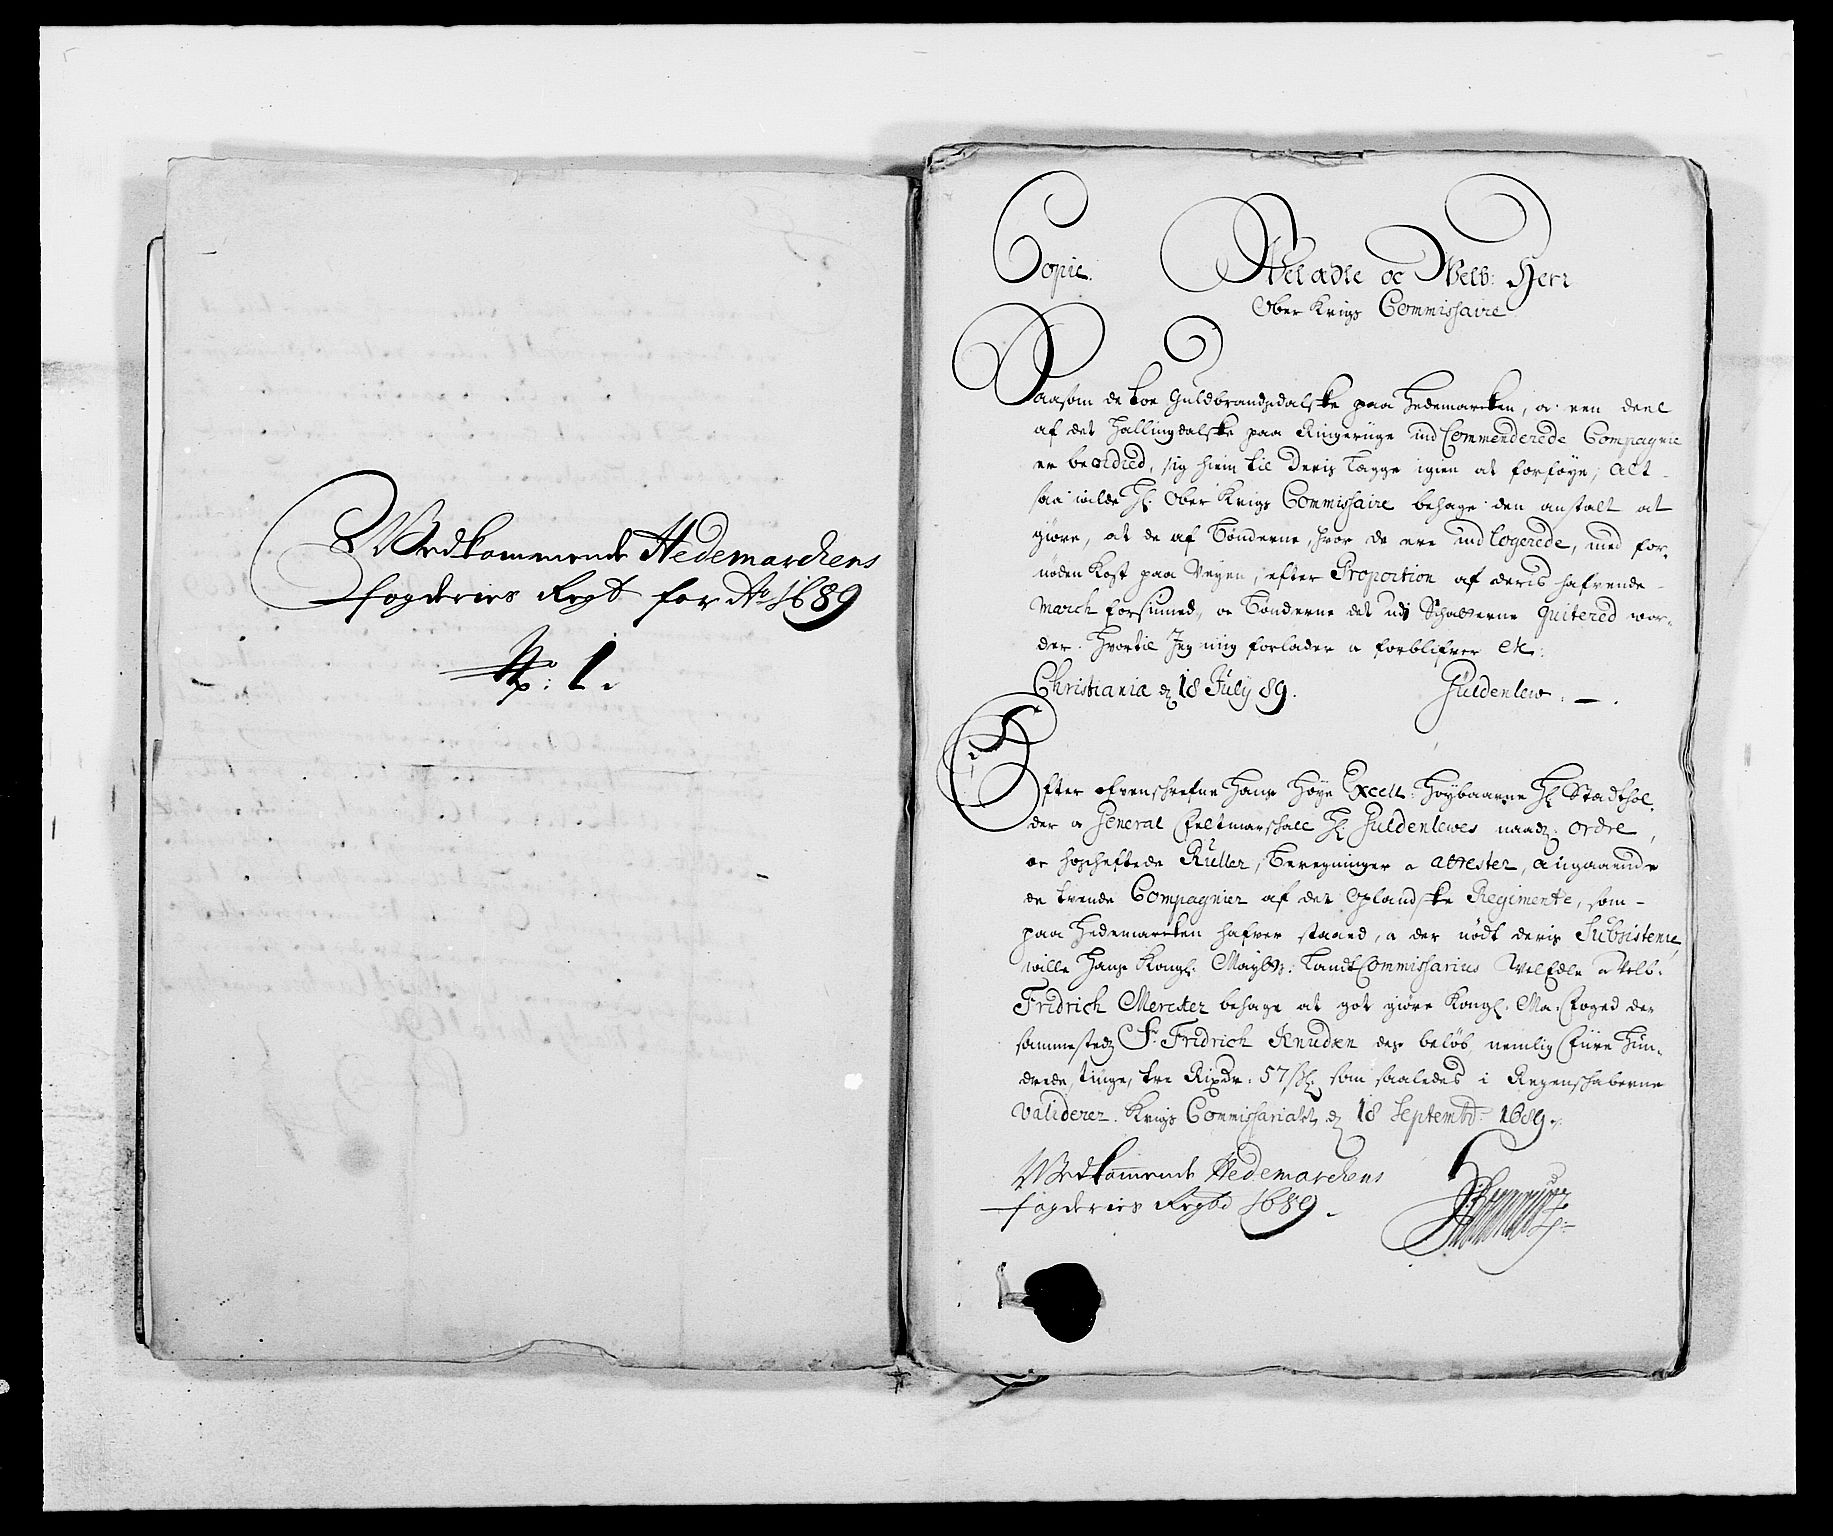 Vedkommende Hedemarchens
fogderies Regt for Ao 1689
No: 1.
Copie.
Weladle oc Welb: Herr
Ober Krigs Commissaire
Saasom de toe Guldbrandsdalske paa Hedemarcken, oc een deel
af det Hallingdalske paa Ringerüge ind Commenderede Compagnie
er beordred, sig hiem til deris Lagge igien at forføye; alt
saa wilde Hr. Ober Krigs Commissaire behage den anstalt at
giøre, at de af Bønderne, hvor de ere ind logerede, med for-
nøden Kost paa Veyen, efter Proportion af deris hafvende
March forsiuned, oc Bønderne det udj Schatterne quitered wor-
der. Hvortil Jeg mig forlader oc forblifver etc:
Christiania d 18 July 89. Güldenlew.
Efter ofvenschrefne Hans Høye Excell: Høybaarne Hr Stadthol-
der oc General Feltmarschalc Hr: Güldenlewes naad: ordre,
oc hosheftede Ruller, Beregninger oc attester, angaaende
de tvende Compagnier af det Oplandske Regimente, som
paa Hedemarcken hafver staaed, oc der nødt deris Subsistence
wille Hans Kongl: Mayts: Landt Commissarius WelEdle oc Velb:
Fridrich Mercker behage at got giøre Kongl: Ma: Foged der
sammested Sr. Fridrich Knudsen des beløb, nemlig Fiire Hun-
drede, tiuge, tre Rixdr: 57 sk: som saaledes i Regenschaberne
validerer. Krigs Commissariatt d 18 Septembr: 1689.
Vedkommende Hedemarchens
fogderies Regtd 1689.